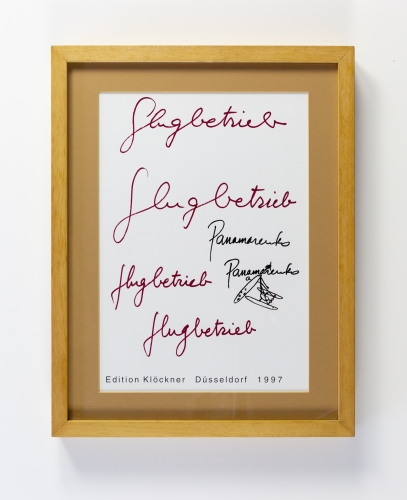 Flugbetrieb
Flugbetrieb
Panamarenko
flugbetrieb Panamarenko
flugbetrieb
Edition Klöckner Düsseldorf 1997